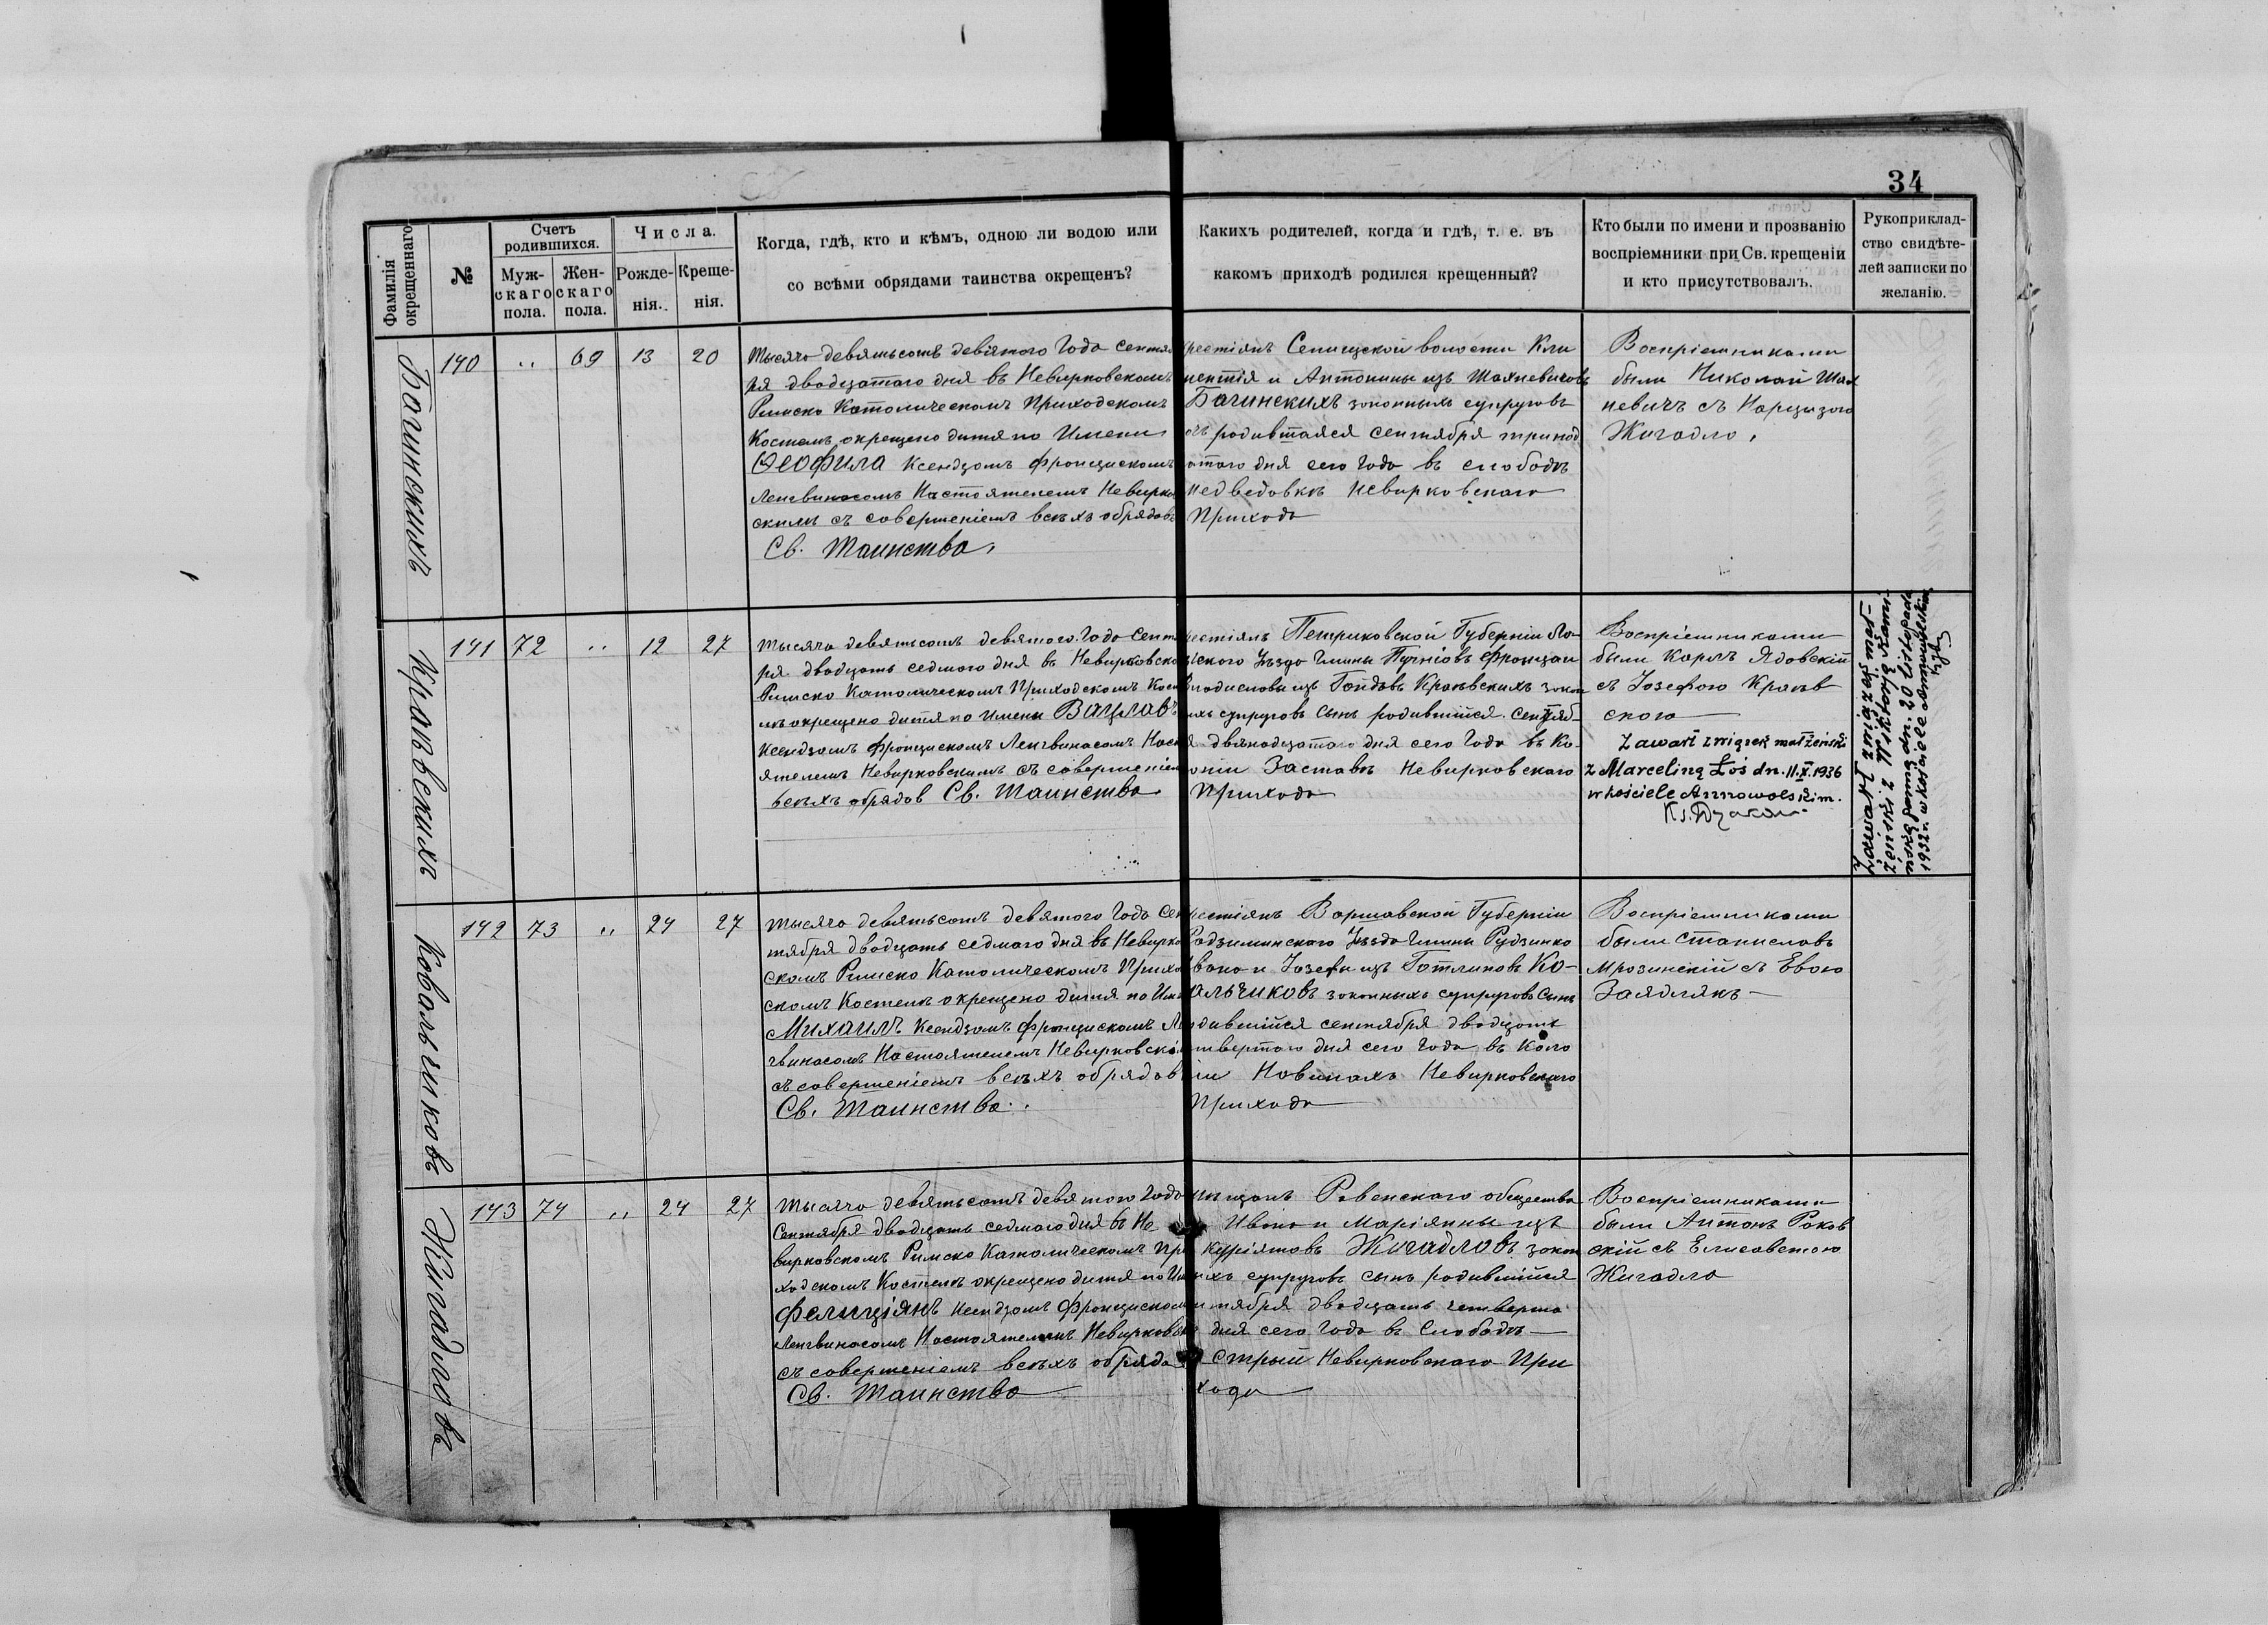 34
Фамилія окрещеннаго
№
Счетъ родившихся.
Муж-
скаго
пола.
Жен-
скаго
пола.
Числа.
Рожде-
нія.
Креще-
нія.
Когда, гдѣ, кто и кѣмъ, одною ли водою или
со всѣми обрядами таинства окрещенъ?
Какихъ родителей, когда и гдѣ, т. е. въ
какомъ приходѣ родился крещенный?
Кто были по имени и прозванію
воспріемники при Св. крещеніи
и кто присутствовалъ.
Рукоприклад-
ство свидѣте-
лей записки по
желанію.
Багинскихъ
140 „ 69 13 20
Тысяча девятьсотъ девятого Года сентя
ря двадцатаго дня въ Невирковскомъ
Римско Католическомъ Приходскомъ
Костелѣ окрещено дитя по Имени
Ѳеофила Ксендзомъ Францискомъ
Ленгвинасомъ Настоятелемъ Невирко
скимъ съ совершеніемъ всѣхъ обрядовъ
Св. Таинства.
рестіянъ Селищской волости Кли
ментія и Антонины изъ Шахневичовъ
Багинскихъ законныхъ супруговъ
очь родившаяся сентября тринад
атого дня сего Года въ слободѣ
Медведовкѣ Невирковскаго
Прихода
Воспріемниками
были Николай Шах
невичъ съ Нарцизою
Жигадло.
Краѣвскихъ
141 72 „ 12 27
Тысяча девятьсотъ девятого Года Сент
ря двадцать седмого дня въ Невирковско
Римско Католическомъ Приходскомъ Кост
лѣ окрещено дитя по Имени Вацлавъ
Ксендзомъ Францискомъ Ленгвинасомъ Наст
ятелемъ Невирковскимъ съ совершеніем
всѣхъ обрядов Св. Таинства
рестіянъ Петриковской Губерніи Ло-
ского Уѣзда Гмины Пучніовъ Францаи
Владиславы изъ Гондѣвъ Краѣвскихъ закон
ихъ супруговъ Сынъ родившійся Сентяб-
я двѣнадцатого дня сего Года въ Ко-
оніи Заставѣ Невирковскаго
Прихода
Воспріемниками
были Карлъ Ядовскій
съ Іозефою Краѣв
скою
Zawarł związek małżeński
z Marceliną Łoś dn. 11.X.1936
w kościele Annowolskim.
Zawarł związek mał-
żeński z
1932 r. w kościele
Ковальчиковъ
142 73 „ 24 27
Тысяча девятьсотъ девятого Года Сен
тября двадцать седмаго дня въ Невирко
скомъ Римско Католическомъ Прихо
скомъ Костелѣ окрещено дитя по Име
Михаилъ Ксендзомъ Францискомъ Ле
гвинасомъ Настоятелемъ Невирковскім
съ совершеніемъ всѣхъ обрядов
Св. Таинства.
рестіянъ Варшавской Губерніи
Радзиминскаго Уѣзда Гмины Рудзинко
Ивана и Іозефы изъ Готликовъ Ко-
альчиковъ законныхъ супруговъ Сынъ
одившійся сентября двадцать
твертого дня сего Года въ Коло
іи Новинахъ Невирковскаго
Прихода
Воспріемниками
были Станиславъ
Мрозинскій съ Евою
Заядлякъ
Жигадловъ
143 74 „ 24 27
Тысяча девятьсотъ девятого Года
Сентября двадцать седмого дня въ Не
вирковскомъ Римско Католическомъ При
ходскомъ Костелѣ окрещено дитя по Им
Фелиціянъ Ксендзомъ Францискомъ
Ленгвинасомъ Настоятелемъ Невирковск
съ совершеніемъ всѣхъ обрядо
Св. Таинства
мѣщанъ Ровенскаго общества
Ивана и Маріянны изъ
Куріятовъ Жигадловъ закон
ыхъ супруговъ сынъ родившійся
нтября двадцать четверто
дня сего Года въ Слободѣ
Стрый Невирковскаго При
хода
Воспріемниками
были Антонъ Раков
скій съ Елисаветою
Жигадло